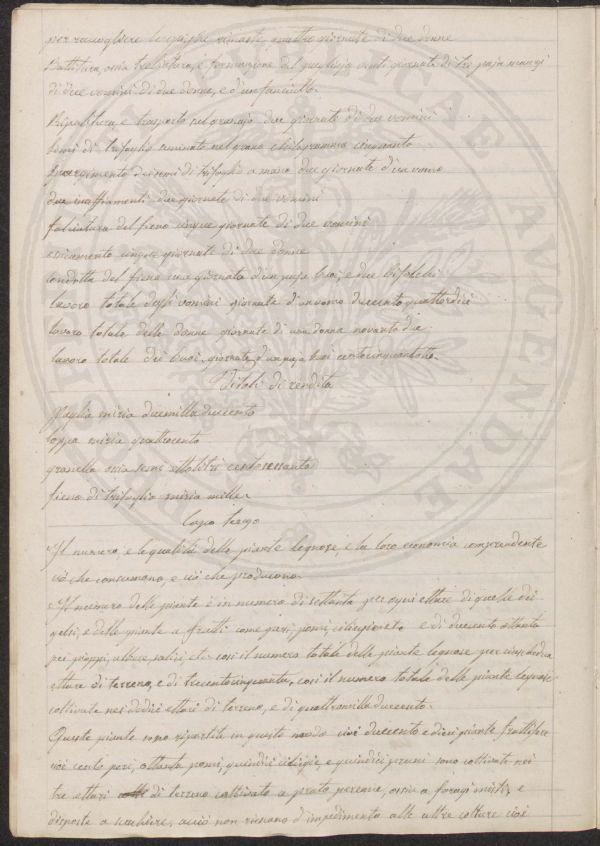 per raccogliere le spighe rimaste quattro giornate di due donne
Battitura, ossia trebbiatura, e formazione del pagliajo venti giornate di tre paja manzi
di dieci uomini di due donne, e d'un fanciullo.
Ripulitura, e trasporto nel granajo due giornate di due uomini
Semi di trifoglio seminato nel grano chilogrammi cinquanta
Spargimento dei semi di trifoglio a mano due giornate d'un uomo
due inaffiamenti due giornate di due uomini
falciatura del fieno cinque giornate di due uomini
essicamento cinque giornate di due donne
condotta del fieno una giornata d'un pajo buoi, e due bifolchi
lavoro totale degli uomini giornate d'un uomo duecento quattordici
lavoro totale delle donne giornate di una donna novanta due
lavoro totale dei buoi, giornate d'un pajo buoi centocinquantotto.
Titoli di rendita
Paglia miria duemilladuecento
loppa miria quattrocento
granella ossia seme ettolitri centosessanta
fieno di trifoglio miria mille.
Capo terzo
Il numero, e le qualità delle piante legnose, e la loro economia comprendente
ciò che consumano, e ciò che producono.
Il numero delle piante è in numero di settanta per ogni ettare di quelle dei
gelsi, e delle piante a frutti come peri, pomi, ciliegie, ec. e di duecento ottanta
pei pioppi, albere, salici, etc. così il numero totale delle piante legnose per ciascheduna
ettare di terreno, è di trecentocinquanta, così il numero totale delle piante legnose
coltivate nei dodici ettari di terreno, è di quattromilleduecento.
Queste piante sono ripartite in questo modo cioè duecento e dieci piante fruttifere
cioè cento peri, ottanta pomi, quindici ciliegie, e quindici pruni sono coltivate nei
tre ettari di terreno coltivato a prato perenne, ossia a foragi misti, e
disposte a scacchiere, acciò non riescano d'impedimento alle altre colture cioè